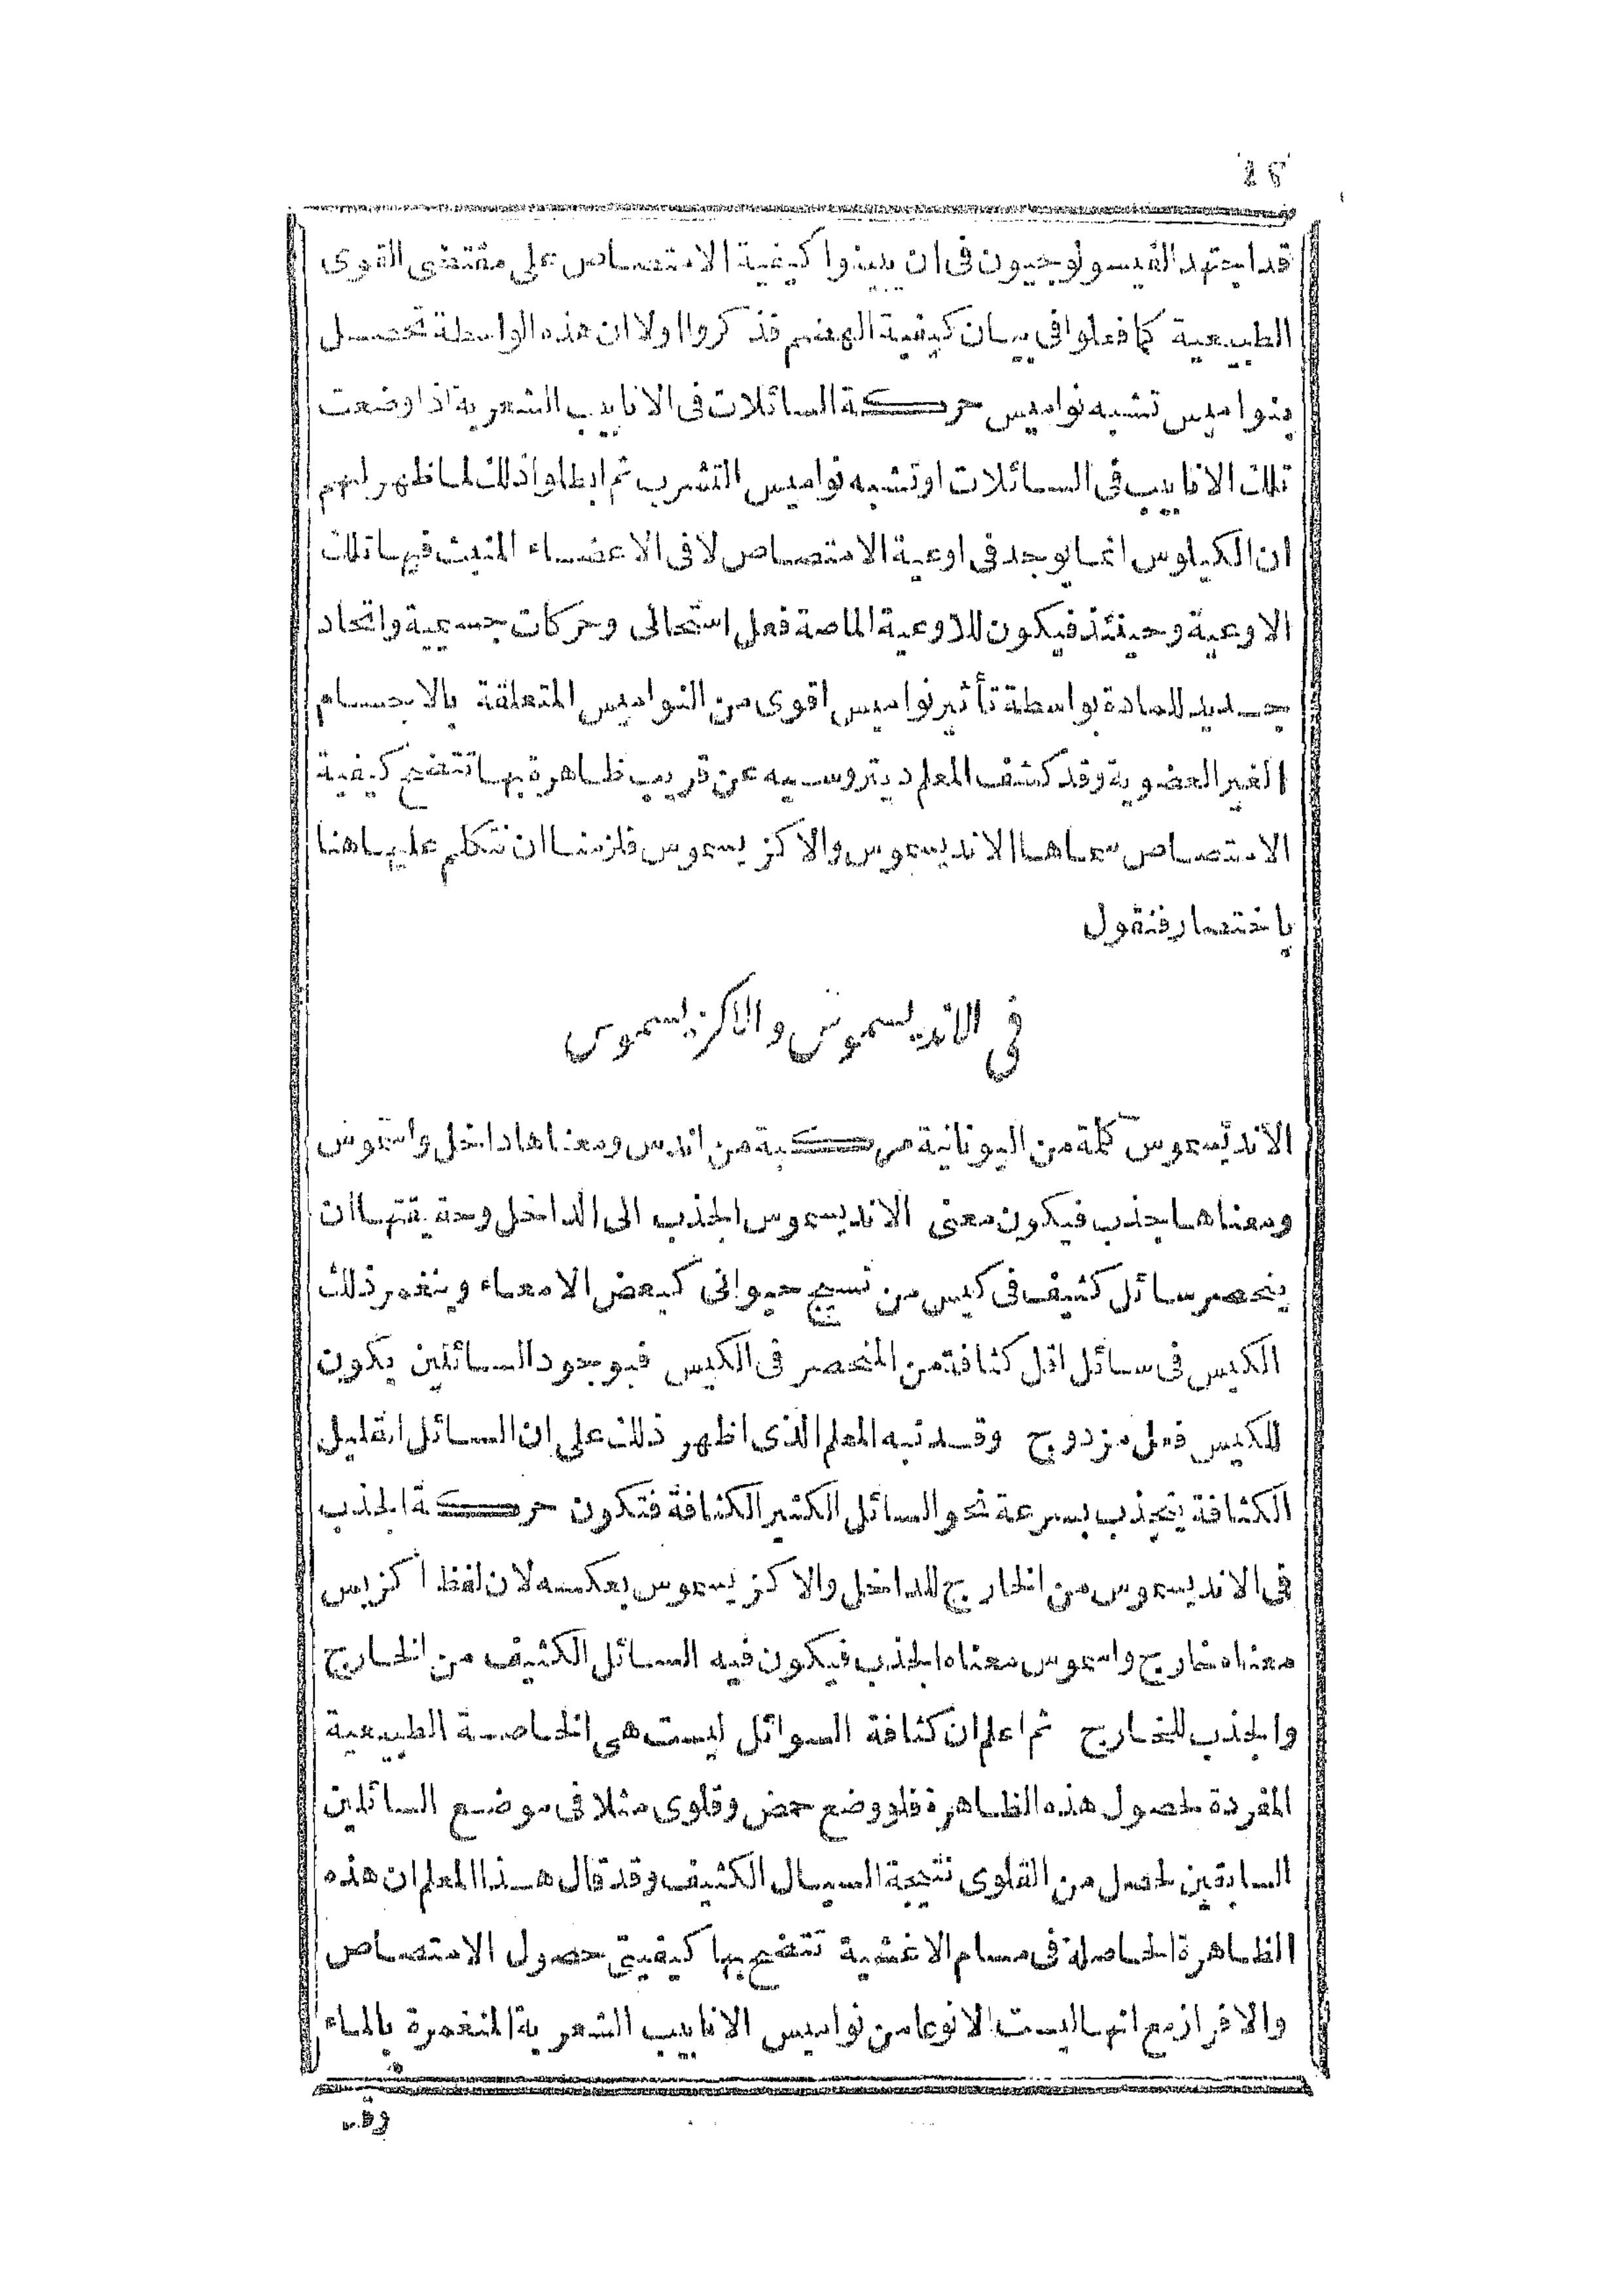 قد اجتهد الفيسولوجيون فى ان يبينوا كيفية الامتصاص على مقتضى القوى
الطبيعية كما فعلوا فى بيان كيفية الهضم فذكروا اولا ان هذه الواسطة تحصل
بنواميس تشبه نواميس حركة السائلات فى الانابيب الشعرية اذا وضعت
تلك الانابيب فى السائلات او تشبه نواميس التشرب ثم ابطلوا ذلك لما ظهر لهم
ان الكيلوس انما يوجد فى اوعية الامتصاص لا فى الاعضاء المنبث فيها تلك
الاوعية وحينئذ فيكون للاوعية الماصة فعل استحالى وحركات جسمية واتحاد
جديد للمادة بواسطة تأثير نواميس اقوى من النواميس المتعلقة بالاجسام
الغير العضوية وقد كشف المعلم ديتروسيه عن قريب ظاهرة بها تتضح كيفية
الامتصاص سماها الانديسموس والاكزيسموس فلزمنا ان نتكلم عليها هنا
باختصار فنقول
فى الانديسموس والاكزيسموس
الانديسموس كلمة من اليونانية مركبة من اندس ومعناها داخل واسموس
ومعناها جذب فيكون معنى الانديسموس الجذب الى الداخل وحقيقتها ان
ينحصر سائل كثيف فى كيس من نسيج حيوانى كبعض الامعاء وينغمر ذلك
الكيس فى سائل اقل كثافة من المنحصر فى الكيس فبوجود السائلين يكون
للكيس فعل مزدوج وقد نبه المعلم الذى اظهر ذلك على ان السائل القليل
الكثافة ينجذب بسرعة نحو السائل الكثير الكثافة فتكون حركة الجذب
فى الانديسموس من الخارج للداخل والاكزيسموس بعكسه لان لفظ اكزيس
معناه خارج واسموس معناه الجذب فيكون فيه السائل الكثيف من الخارج
والجذب للخارج ثم اعلم ان كثافة السوائل ليست هى الخاصة الطبيعية
المفردة لحصول هذه الظاهرة فلو وضع حمض وقلوى مثلا فى موضع السائلين
السابقين لحصل من القلوى نتيجة السيال الكثيف وقد قال هذا المعلم ان هذه
الظاهرة الحاصلة فى مسام الاغشية تتضح بها كيفية حصول الامتصاص
والافراز مع انها ليست الا نوعا من نواميس الانابيب الشعرية المنغمرة بالماء
وقد